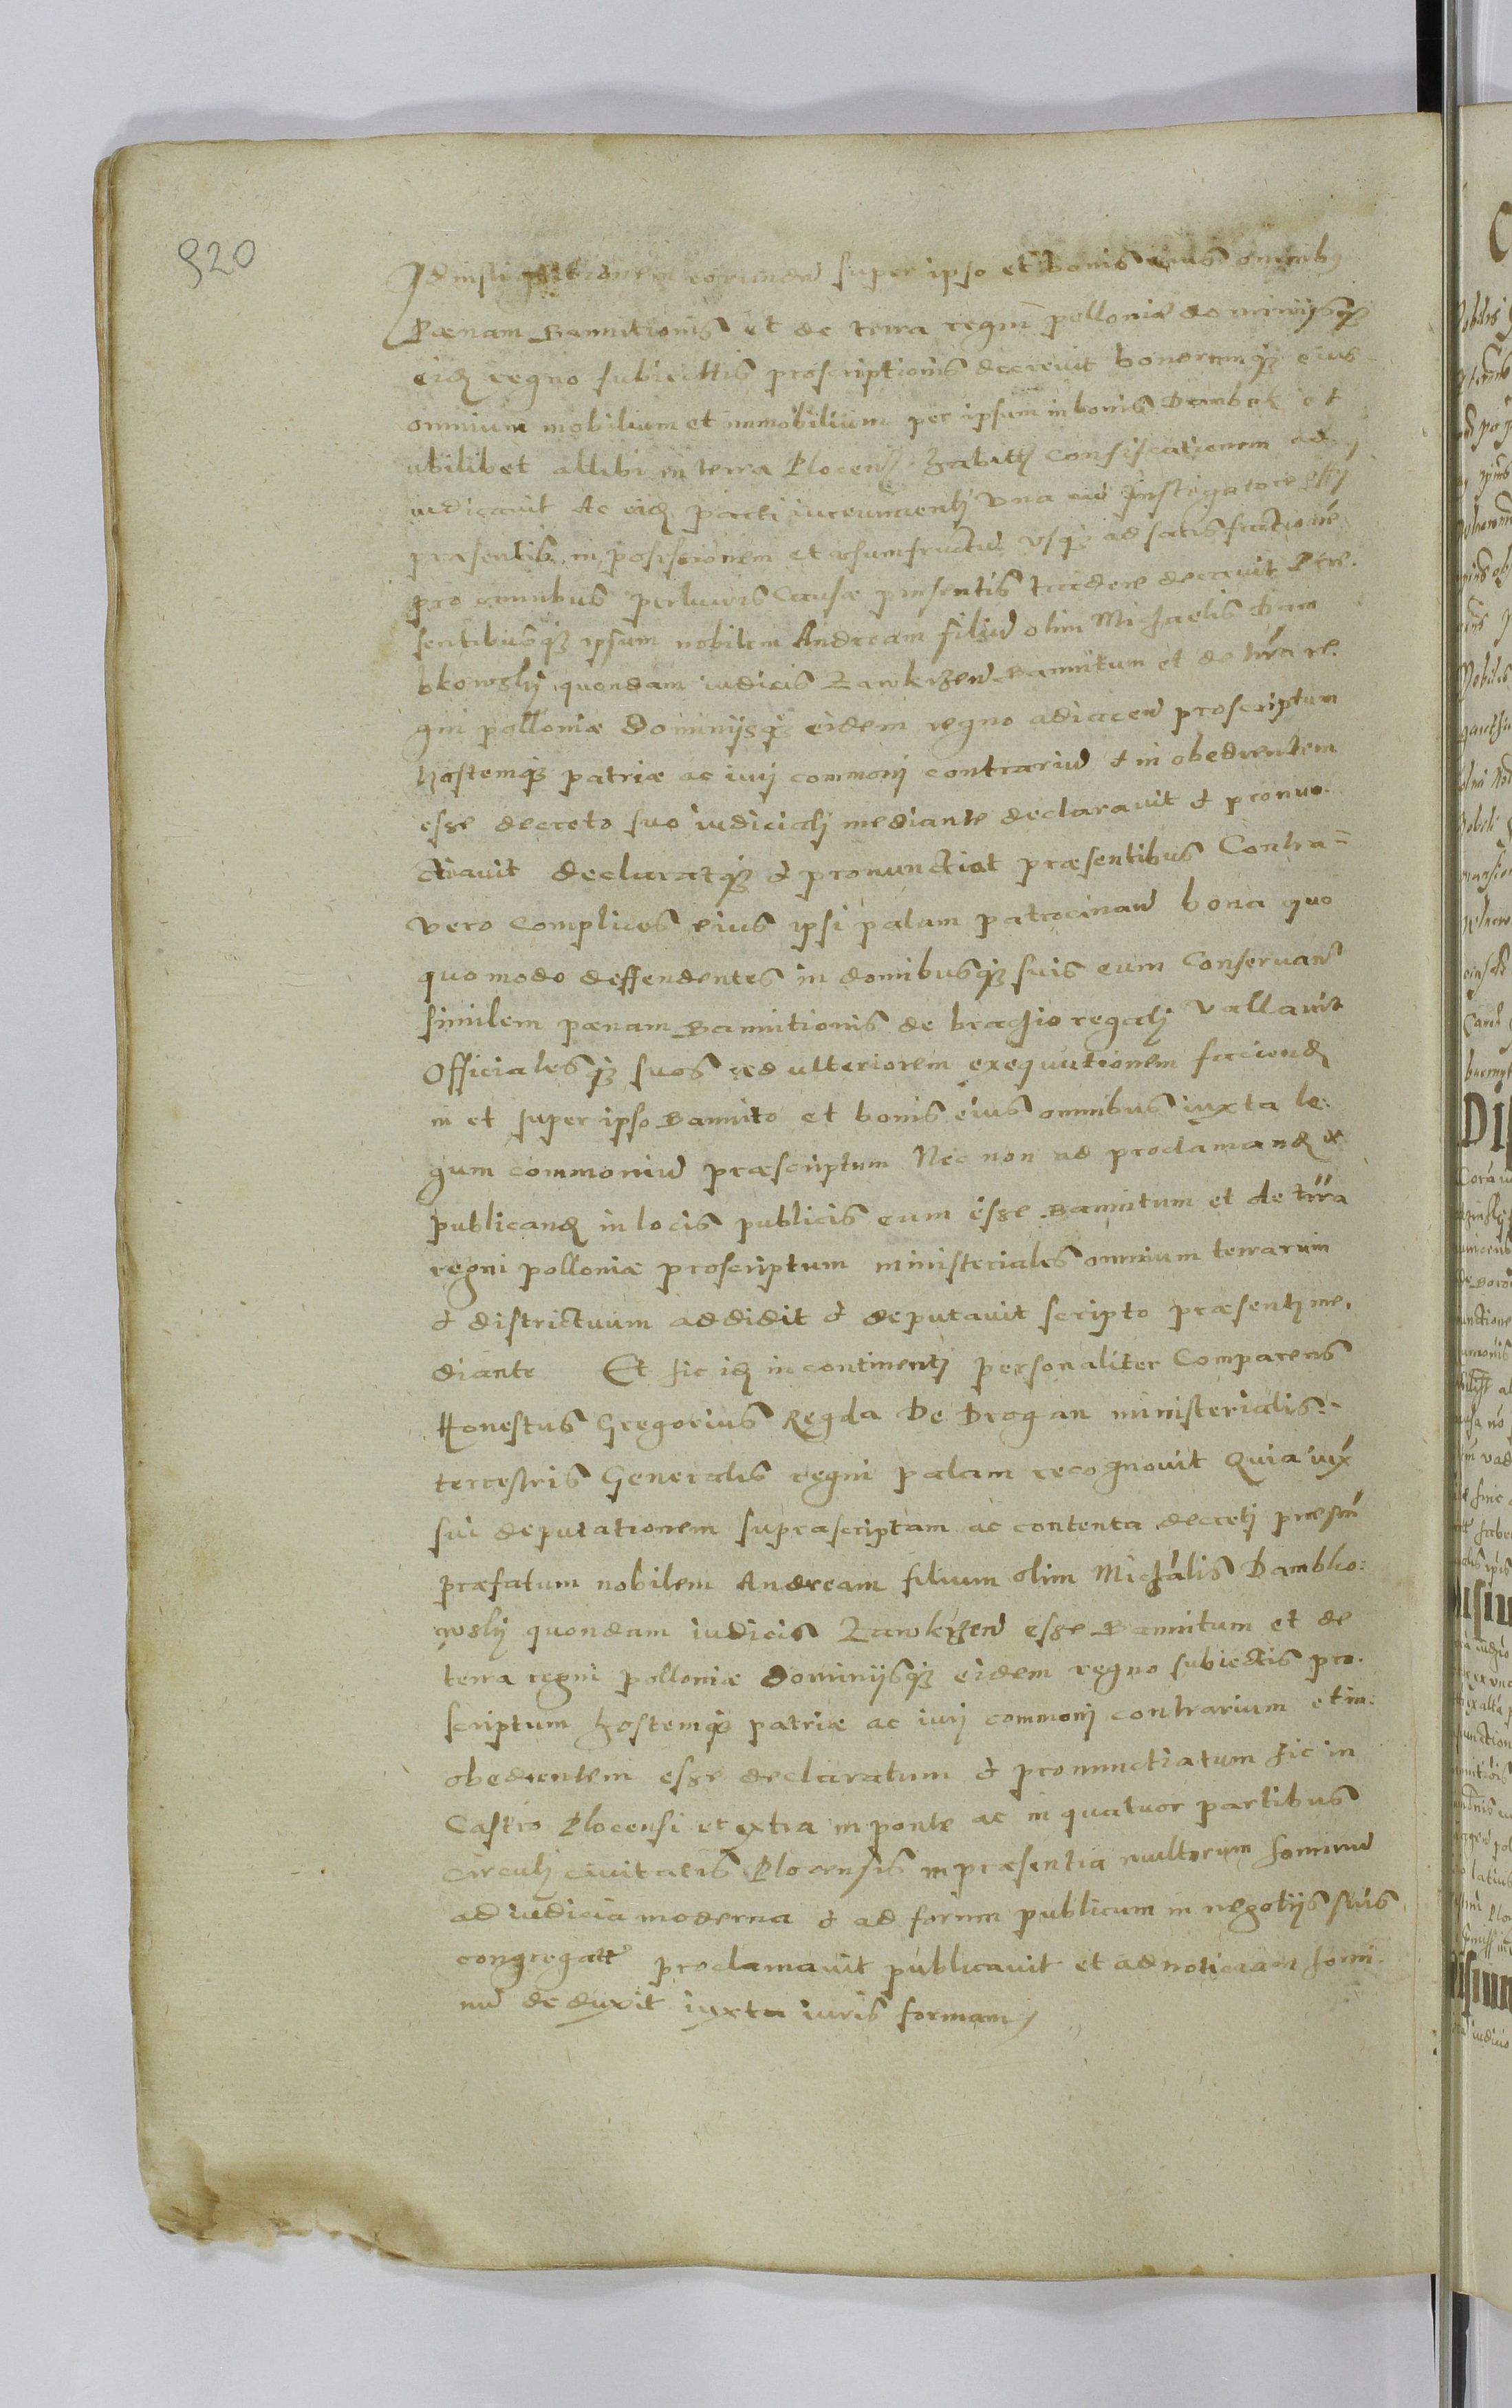 920
Ad instigationem eorundem super ipso et bonis eius omnibus
Pœnam Bannitionis et de terra regni polloniæ dominijsq3
eid3 regno subiectis proscriptionis decrevit bonorumq3 eius
omnium mobilium et immobilium per ipsum in bonis Dambsk et
ubilibet allibi in terra Plocen habitt Consiscationem ad
iudicavit Ac eid3 parti iurevincenti vna cū Instigatore
præsentib in possessionem et vsumfructū vsq3 ad satisfactionē
pro omnibus perlucris Causæ præsentis tradere decrevit Præ
sentibusq3 ipsum nobilem Andream filiū olim Michaelis dam
bkowskij quondam iudicis Zawkrzen Bannitum et de terra re
gni polloniæ Dominijsq3 eidem regno adiacen proscriptum
hostemq3 patriæ ac iurj commonj contrariū & in obedientem
esse decreto suo iudicialj mediante declaravit & pronun
ctiavit declaratq3 & pronunctiat præsentibus Contra=
vero complices eius ipsi palam patrocinan bona quo
quo modo deffendentes in domibusq3 suis eum Conservan
similem pœnam Bannitionis de brachio regalj Vallavit
Officialesq3 suos ad ulteriorem exequutionem faciend
in et super ipso Bannito et bonis eius omnibus iuxta le:
gum commoniū præscriptum Nec non ad proclamand &
publicand in locis publicis eum esse Bannitum et de terra
regni polloniæ proscriptum ministeriales omnium terrarum
& districtuum addidit & deputavit scripto præsentj me.
diante Et sic id3 in continentj personaliter Comparens
Honestus Gregorius Regda De Drogan ministerialis:-
terrestris Generalis regni palam recognovit Quia iux
sui deputationem suprascriptam ac contenta decretj præsen
præfatum nobilem Andream filium olim Michaelis Dambko:
wskij quondam iudicis Zawkrzen esse Bannitum et de
terra regni polloniæ Dominijsq3 eidem regno subiectis pro.
scriptum hostemq3 patriæ ac iurj commonj contrarium et in:
obedientem esse declaratum & pronunctiatum sic in
Castro Plocensi et extra in ponte ac in quatuor partibus
Circulj Civitatis Plocensis in præsentia multorum hominū
ad iudicia moderna & ad forum publicum in negotijs suis
congregatt proclamavit publicavit et ad noticiam homi
nū deduxit iuxta iuris formam